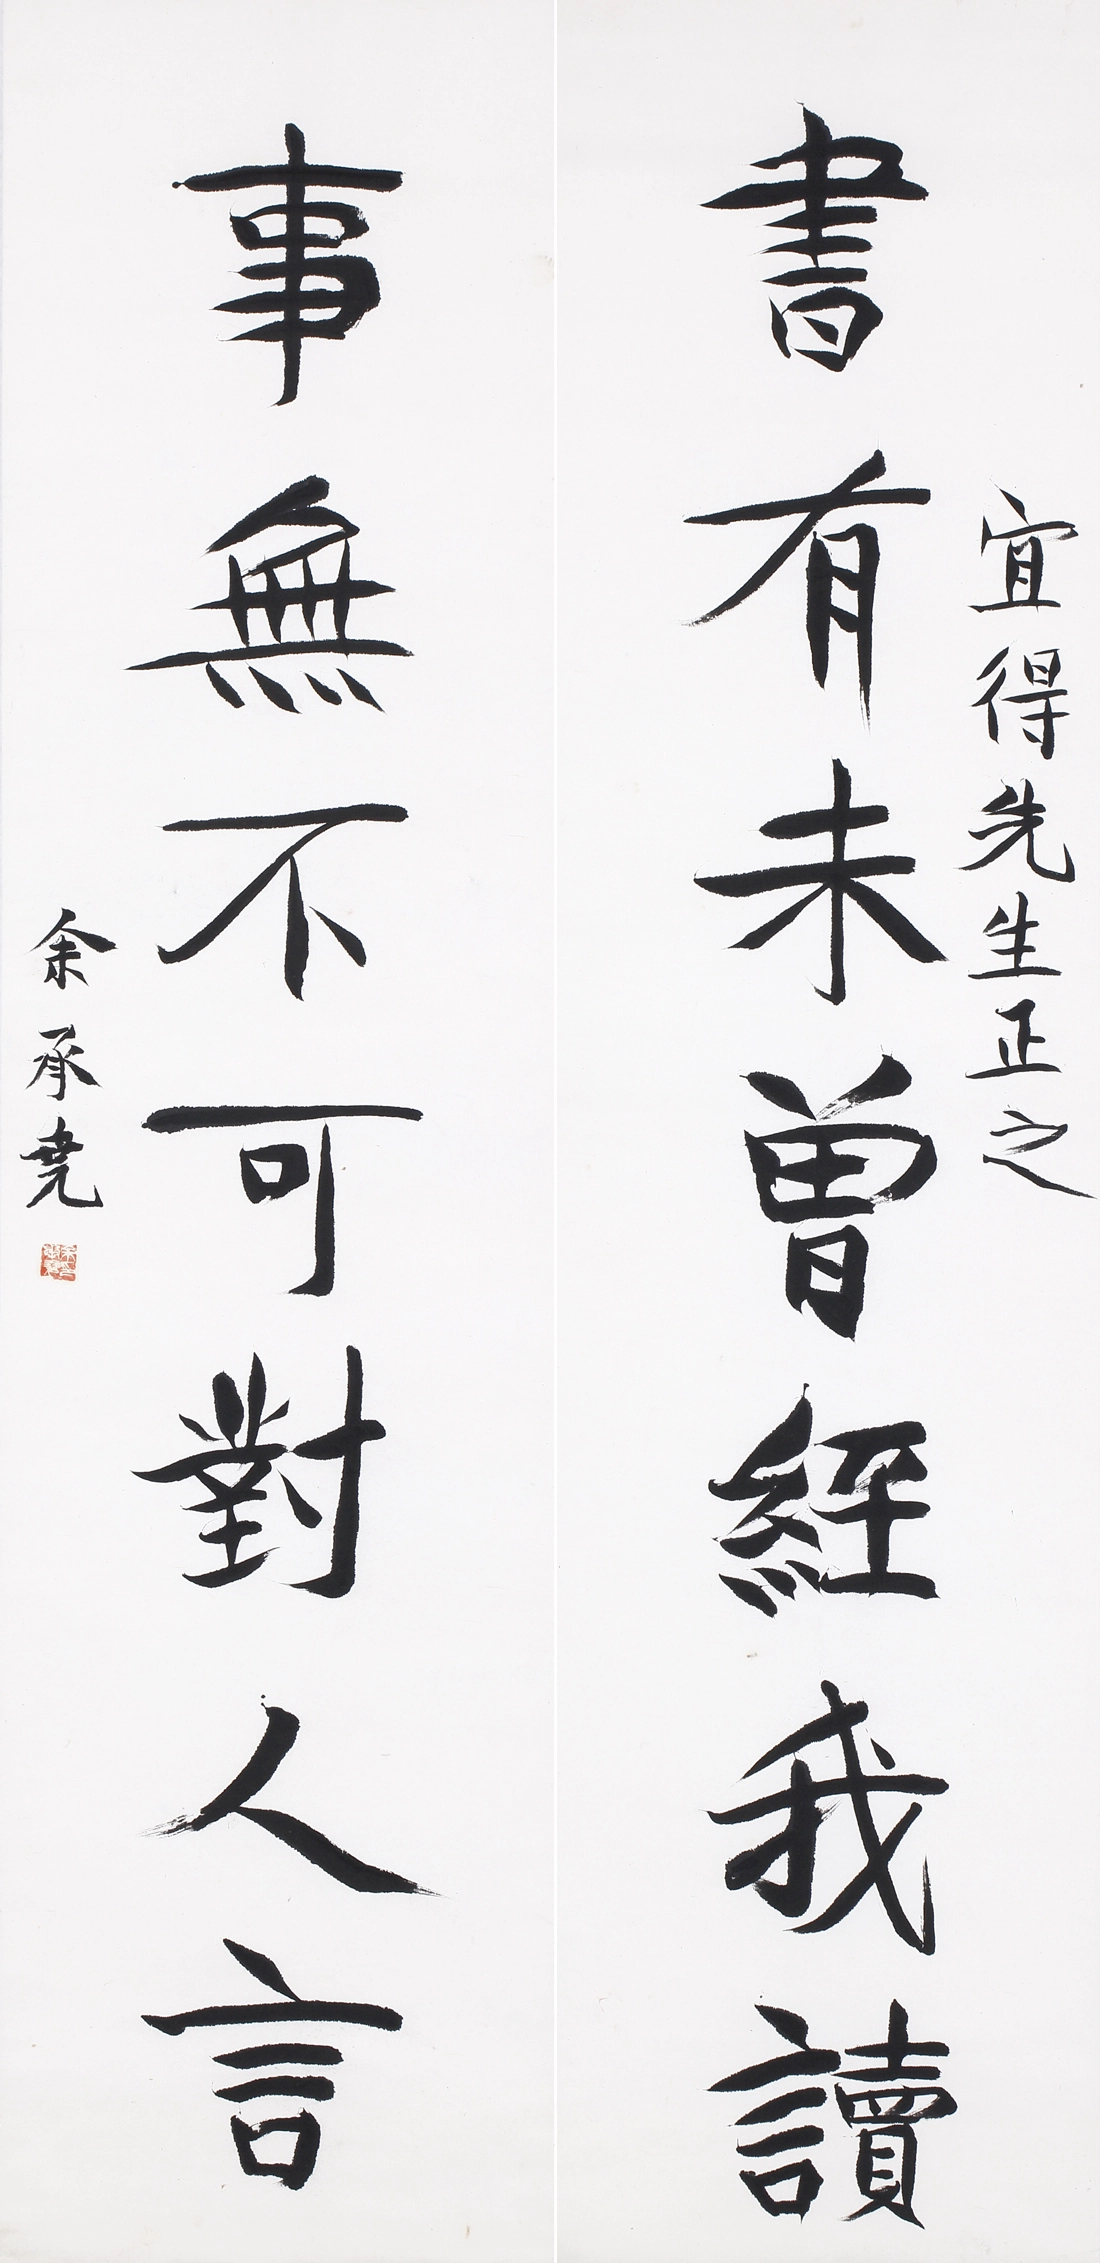 宜得先生正之
書有未曾經我讀
事無不可對人言
余承堯